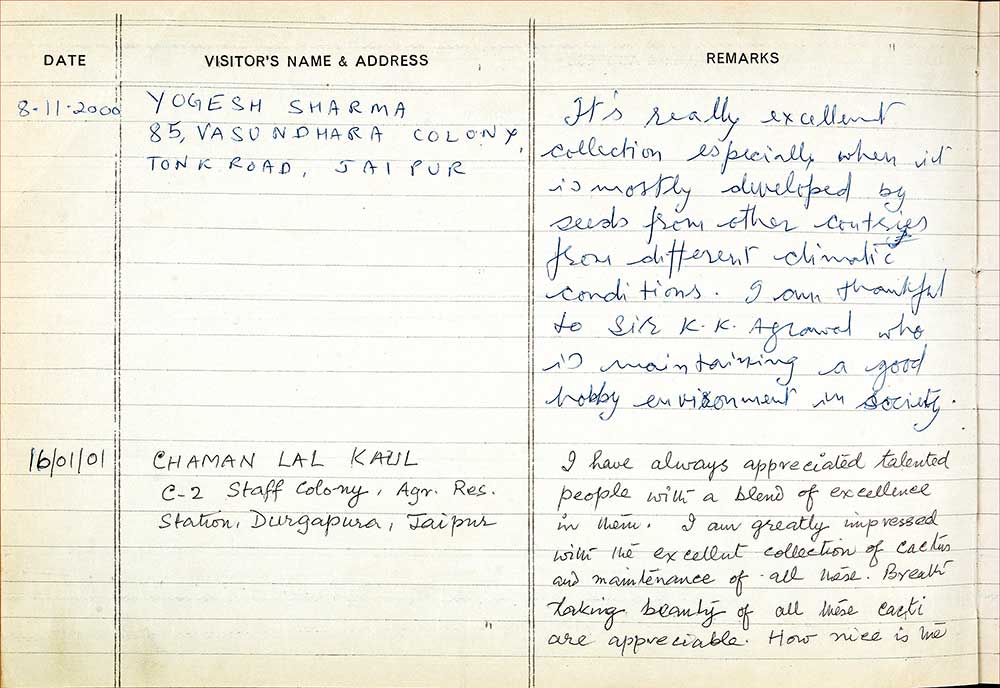 DATE
VISITOR'S NAME & ADDRESS
REMARKS
8-11-2000
YOGESH SHARMA
85, VASUNDHARA COLONY,
TONK ROAD, JAIPUR
It's really excellent
collection especially when it
is mostly developed by
seeds from other contries
from different climatic
conditions. I am thankful
to Sir K.K. Agrawal who
is maintaining a good
hobby environment in society.
16/01/01
CHAMAN LAL KAUL
C-2 Staff Colony, Agr. Res.
Station, Durgapura, Jaipur
I have always appreciated talented
people with a blend of excellence
in them. I am greatly impressed
with the excellent collection of cactus
and maintenance of all these. Breath
taking beauty of all these cacti
are appreciable. How nice is the